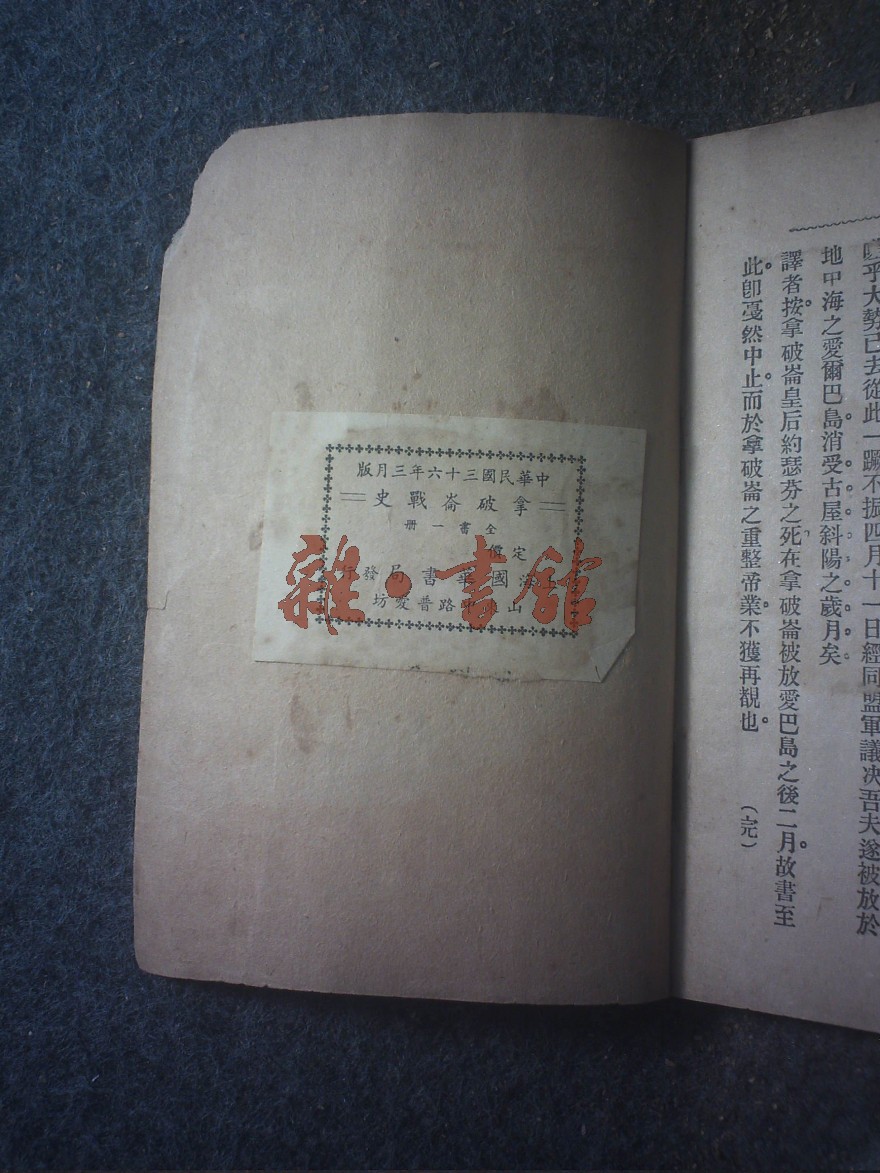 乎大勢已去從此一蹶不振四月十一日經同盟軍議决吾夫遂被放於
地中海之愛爾巴島消受古屋斜陽之歲月矣
譯者按拿破崙皇后約瑟芬之死在拿破崙被放愛巴島之後二月。故書至
此。卽戞然中止。而於拿破崙之重整帝業。不獲再覩也。
(完)
中華民國三十六年三月版
拿破崙戰史
全書一册
定價
海國華書局發行
山路普愛坊
雜·書館